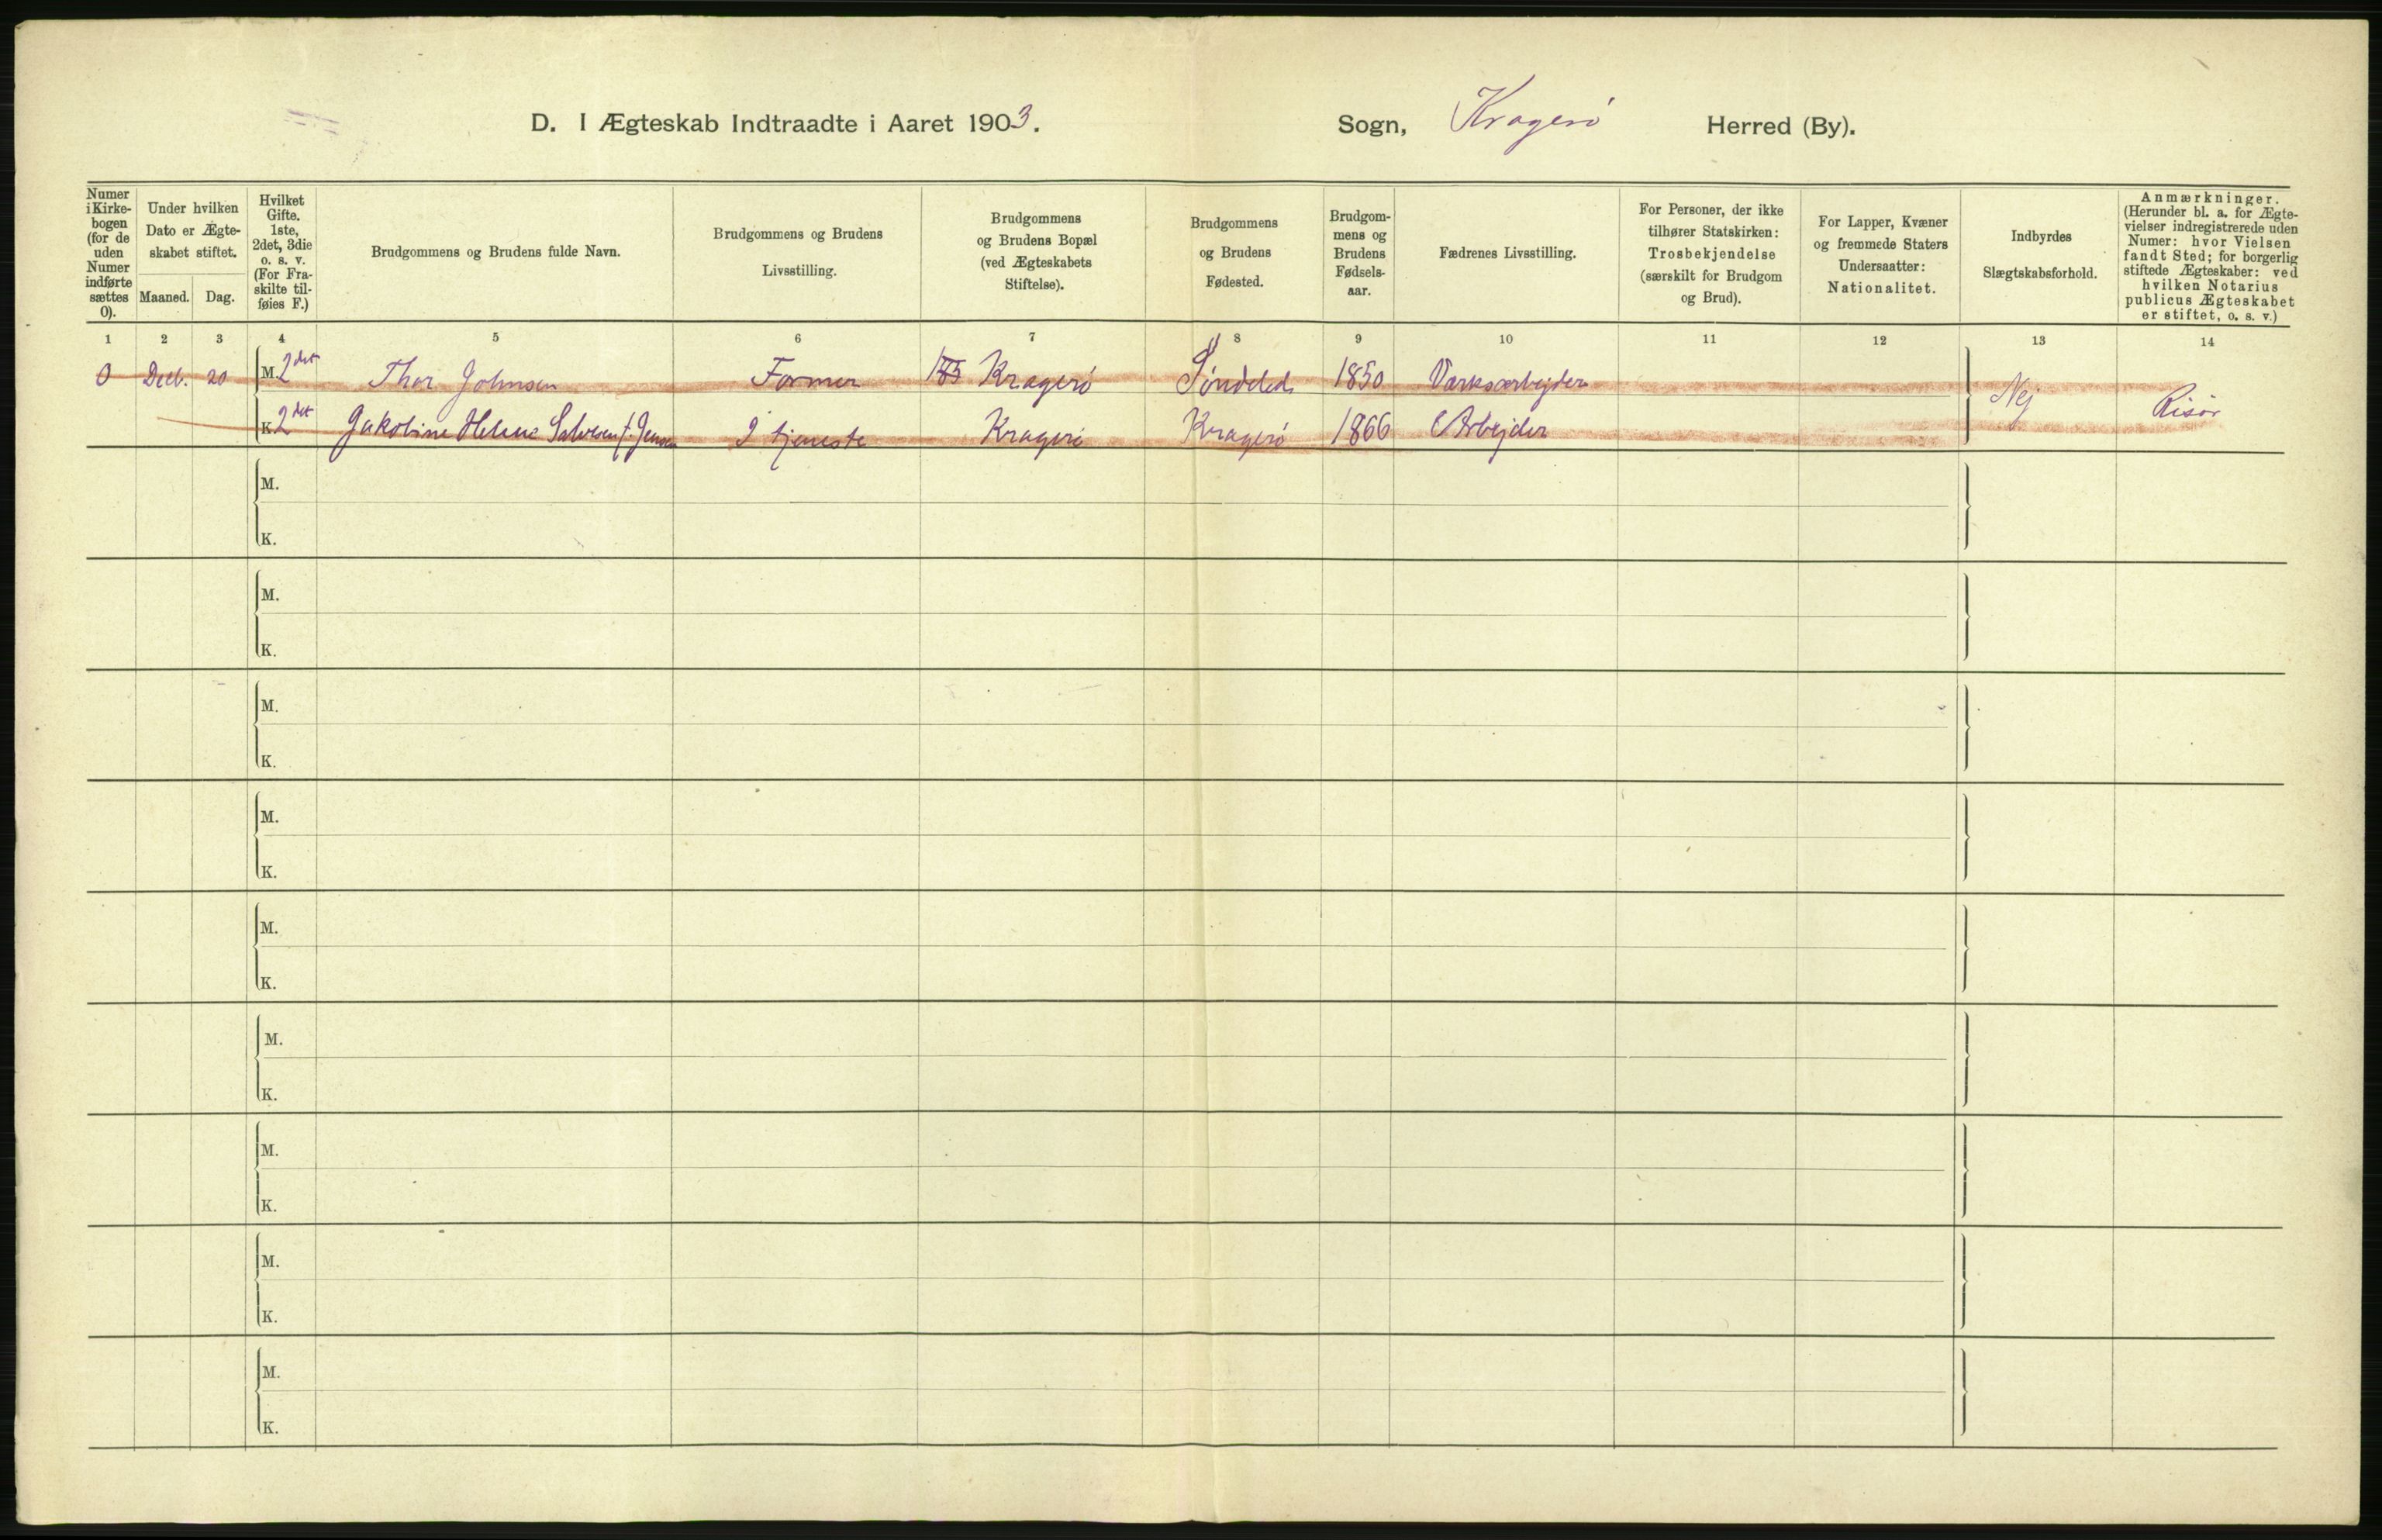 D. I Ægteskab Indtraadte i Aaret 1903. Sogn, Kragerö Herred (By).
Numer i Kirke-bogen (for de uden Numer indførte sættes 0).
Under hvilken Dato er Ægte-skabet stiftet.
Maaned. Dag.
Hvilket Gifte. 1ste, 2det, 3die o. s. v. (For Fra-skilte til-føies F.)
Brudgommens og Brudens fulde Navn.
Brudgommens og Brudens Livsstilling.
Brudgommens og Brudens Bopæl (ved Ægteskabets Stiftelse).
Brudgommens og Brudens Fødested.
Brudgom-mens og Brudens Fødsels-aar.
Fædrenes Livsstilling.
For Personer, der ikke tilhører Statskirken: Trosbekjendelse (særskilt for Brudgom og Brud).
For Lapper, Kvæner og fremmede Staters Undersaatter: Nationalitet.
Indbyrdes Slægtskabsforhold.
Anmærkninger. (Herunder bl. a. for Ægte-vielser indregistrerede uden Numer: hvor Vielsen fandt Sted; for borgerlig stiftede Ægteskaber: ved hvilken Notarius publicus Ægteskabet er stiftet, o. s. v.)
1 2 3 4 5 6 7 8 9 10 11 12 13 14
0 Decb. 20 M. 2det Thor Johnsen Former Kragerö Söndeled 1850 Værksarbejder Nej Risör
K. 2det Jakobine Helene Salvesen f. Jensen I tjeneste Kragerö Kragerö 1866 Arbejder
M.
K.
M.
K.
M.
K.
M.
K.
M.
K.
M.
K.
M.
K.
M.
K.
M.
K.